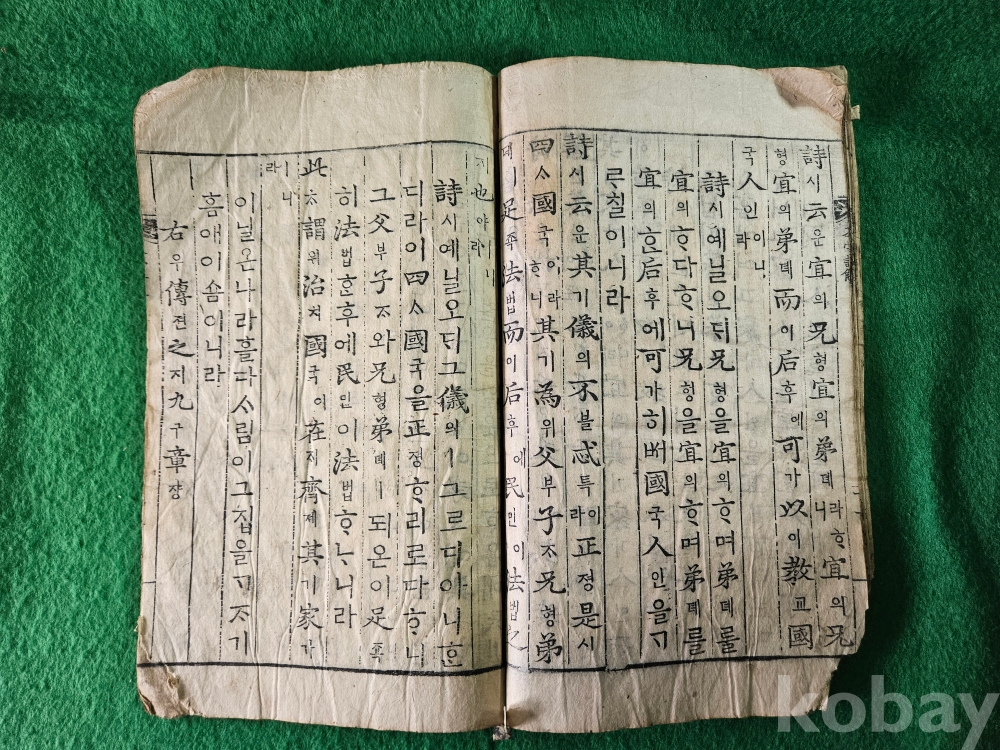 詩시云운宜의兄형宜의弟뎨라ᄒᆞ니宜의兄
형宜의弟뎨而이后후에可가以이敎교國
국人인이니라
詩시예닐오ᄃᆡ兄형을宜의ᄒᆞ며弟뎨ᄅᆞᆯ
宜의ᄒᆞ다ᄒᆞ니兄형을宜의ᄒᆞ며弟뎨를
宜의ᄒᆞᆫ后후에可가히ᄡᅥ國국人인을ᄀᆞ
ᄅᆞ칠이니라
詩시云운其기儀의不블忒특이라正졍是시
四ᄉᆞ國국이라ᄒᆞ니其기為위父부子ᄌᆞ兄형弟
뎨ㅣ足족法법而이后후에民민이法법之
지也야ㅣ니라
詩시예닐오ᄃᆡ그儀의ㅣ그르디아니ᄒᆞᆫ
디라이四ᄉᆞ國국을正졍ᄒᆞ리로다ᄒᆞ니
그父부子ᄌᆞ와兄형弟뎨ㅣ되온이足족
히法법ᄒᆞᆫ후에民민이法법ᄒᆞᄂᆞ니라
此ᄎᆞ謂위治치國국이在ᄌᆡ齊졔其기家가
ㅣ니라
이닐온나라흘다ᄉᆞ림이그집을ᄀᆞᄌᆞ기
홈애이숌이니라
右우傳젼之지九구章쟝
kobay